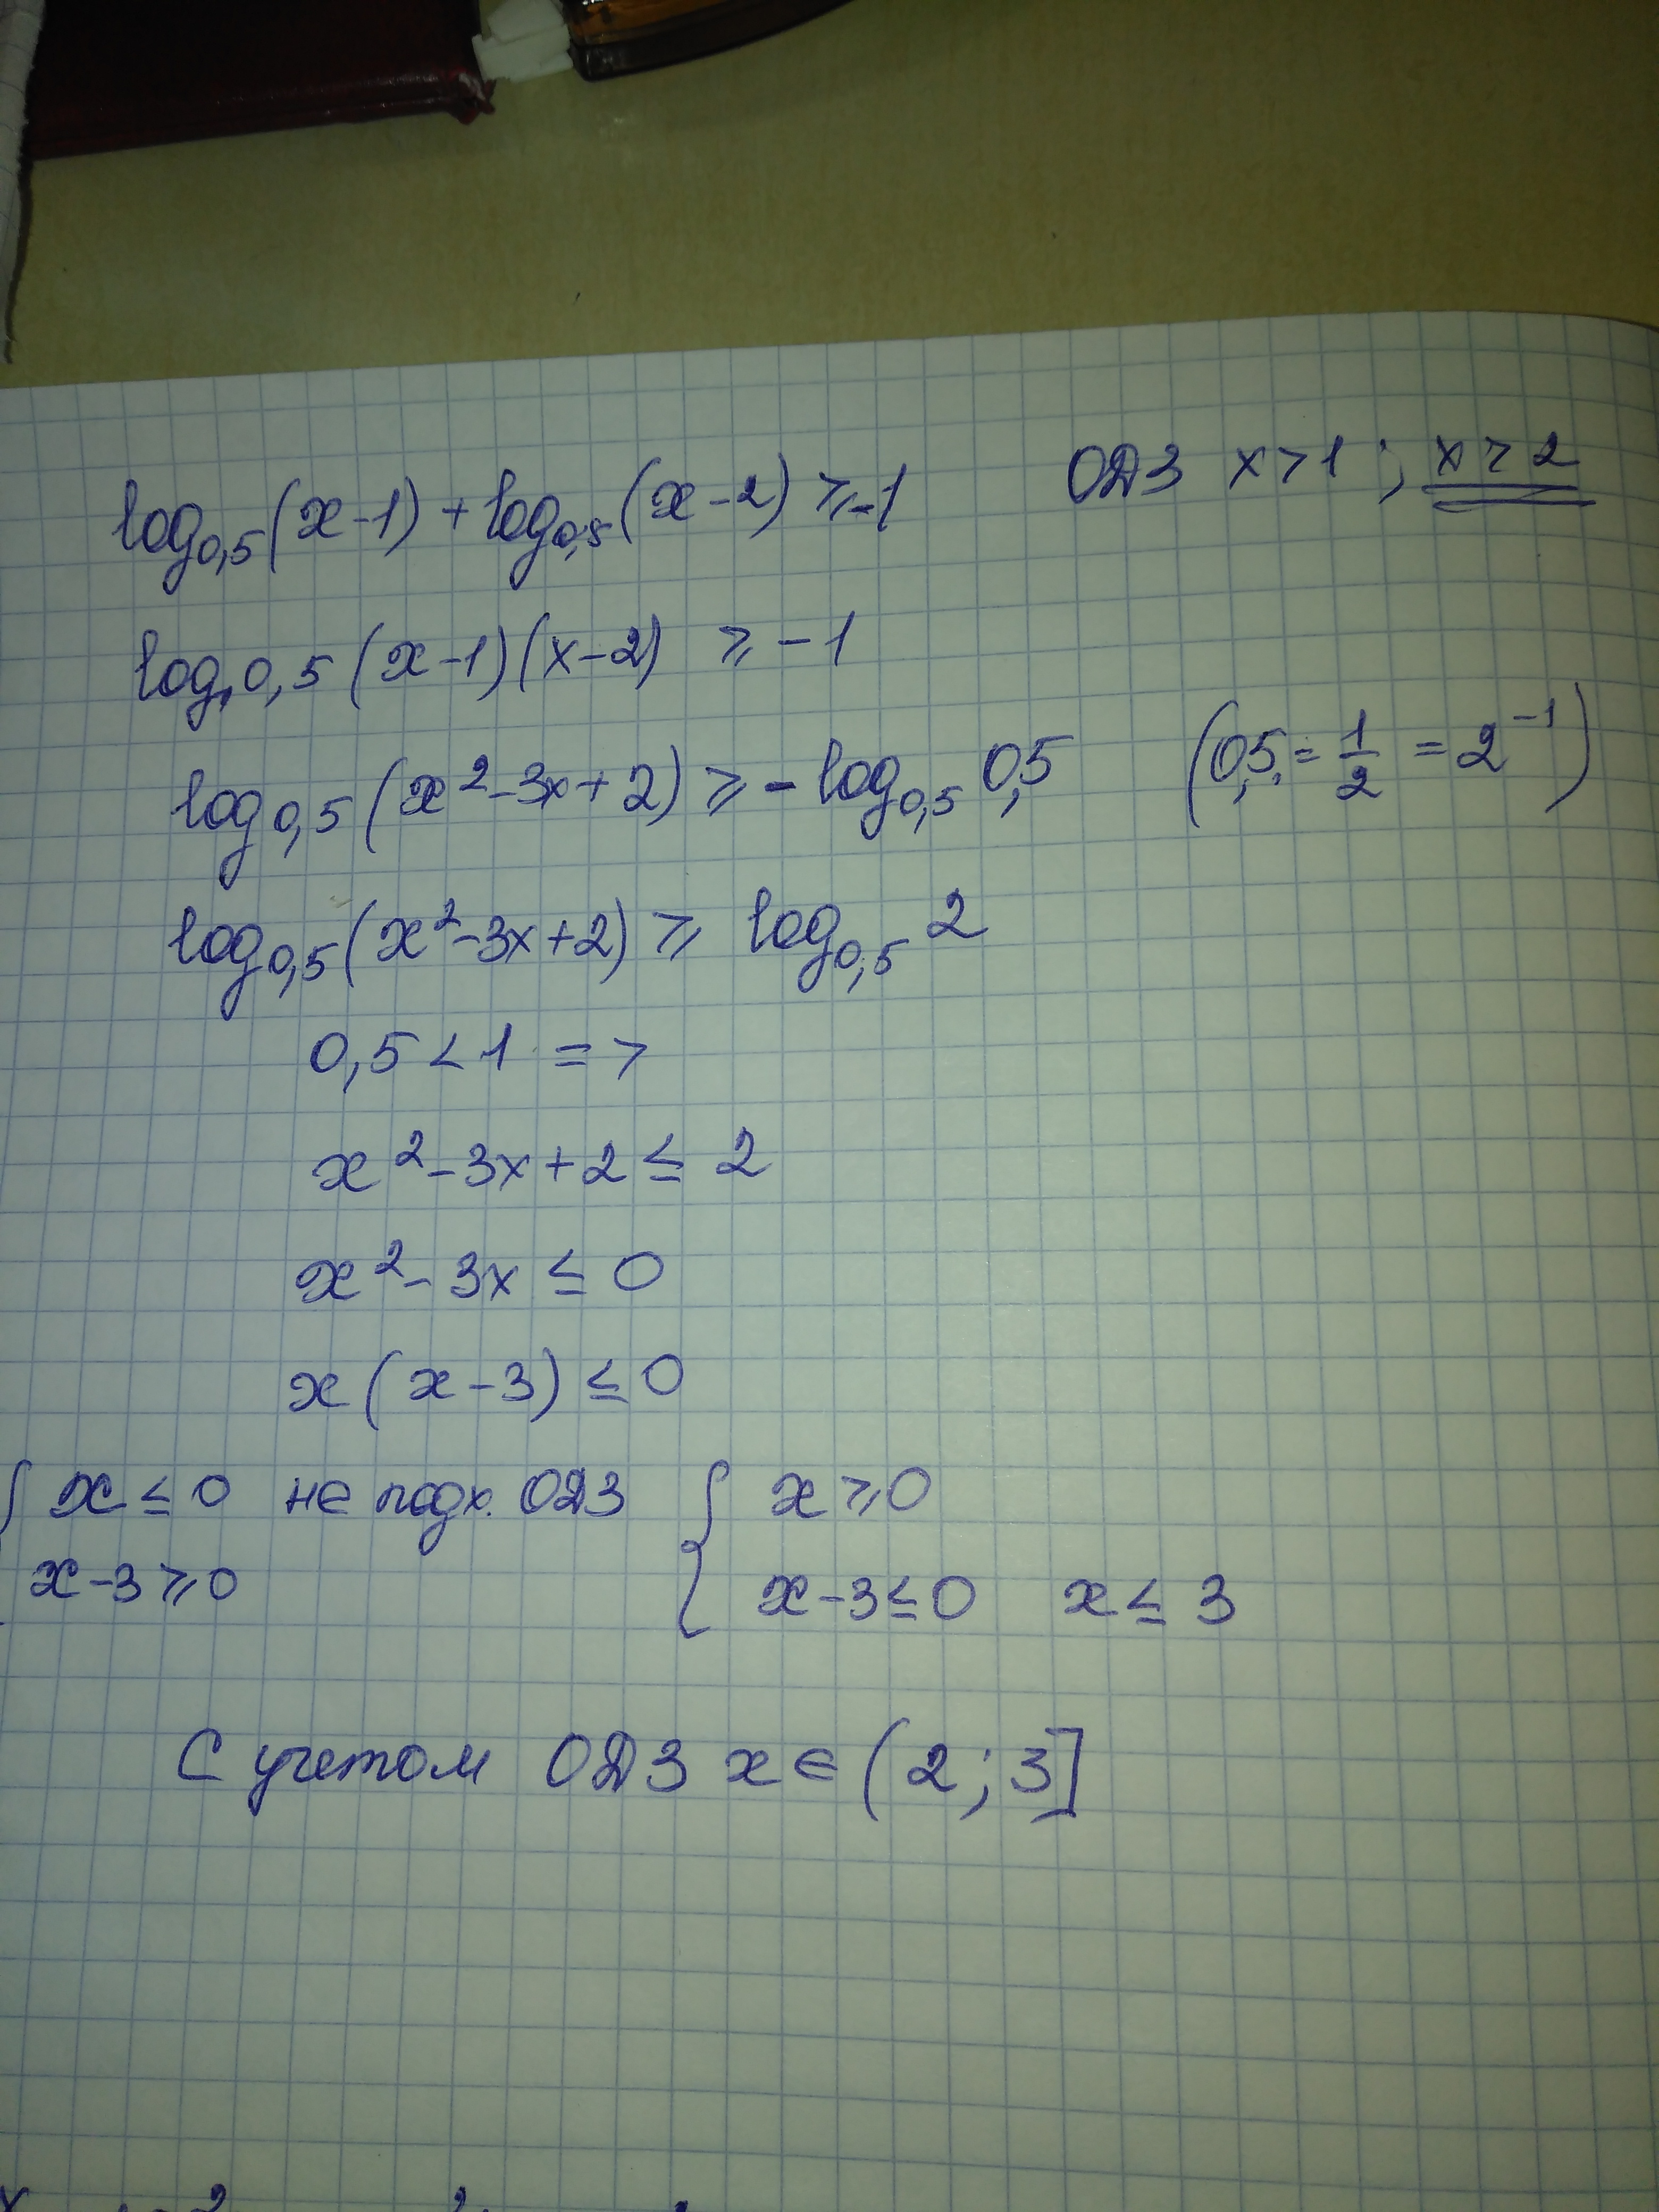 log₀,₅(x-1) + log₀,₅(x-2) ≥ -1 ОДЗ x>1 ; x>2
log 0,5 (x-1)(x-2) ≥ -1
log₀,₅(x²-3x+2) ≥ - log₀,₅ 0,5 (0,5 = 1/2 = 2⁻¹)
log₀,₅(x²-3x+2) ≥ log₀,₅ 2
0,5 < 1 =>
x²-3x+2 ≤ 2
x²-3x ≤ 0
x(x-3) ≤ 0
{ x ≤ 0 не подх. ОДЗ { x ≥ 0
x-3 ≥ 0 x-3 ≤ 0 x ≤ 3
С учетом ОДЗ x ∈ (2; 3]